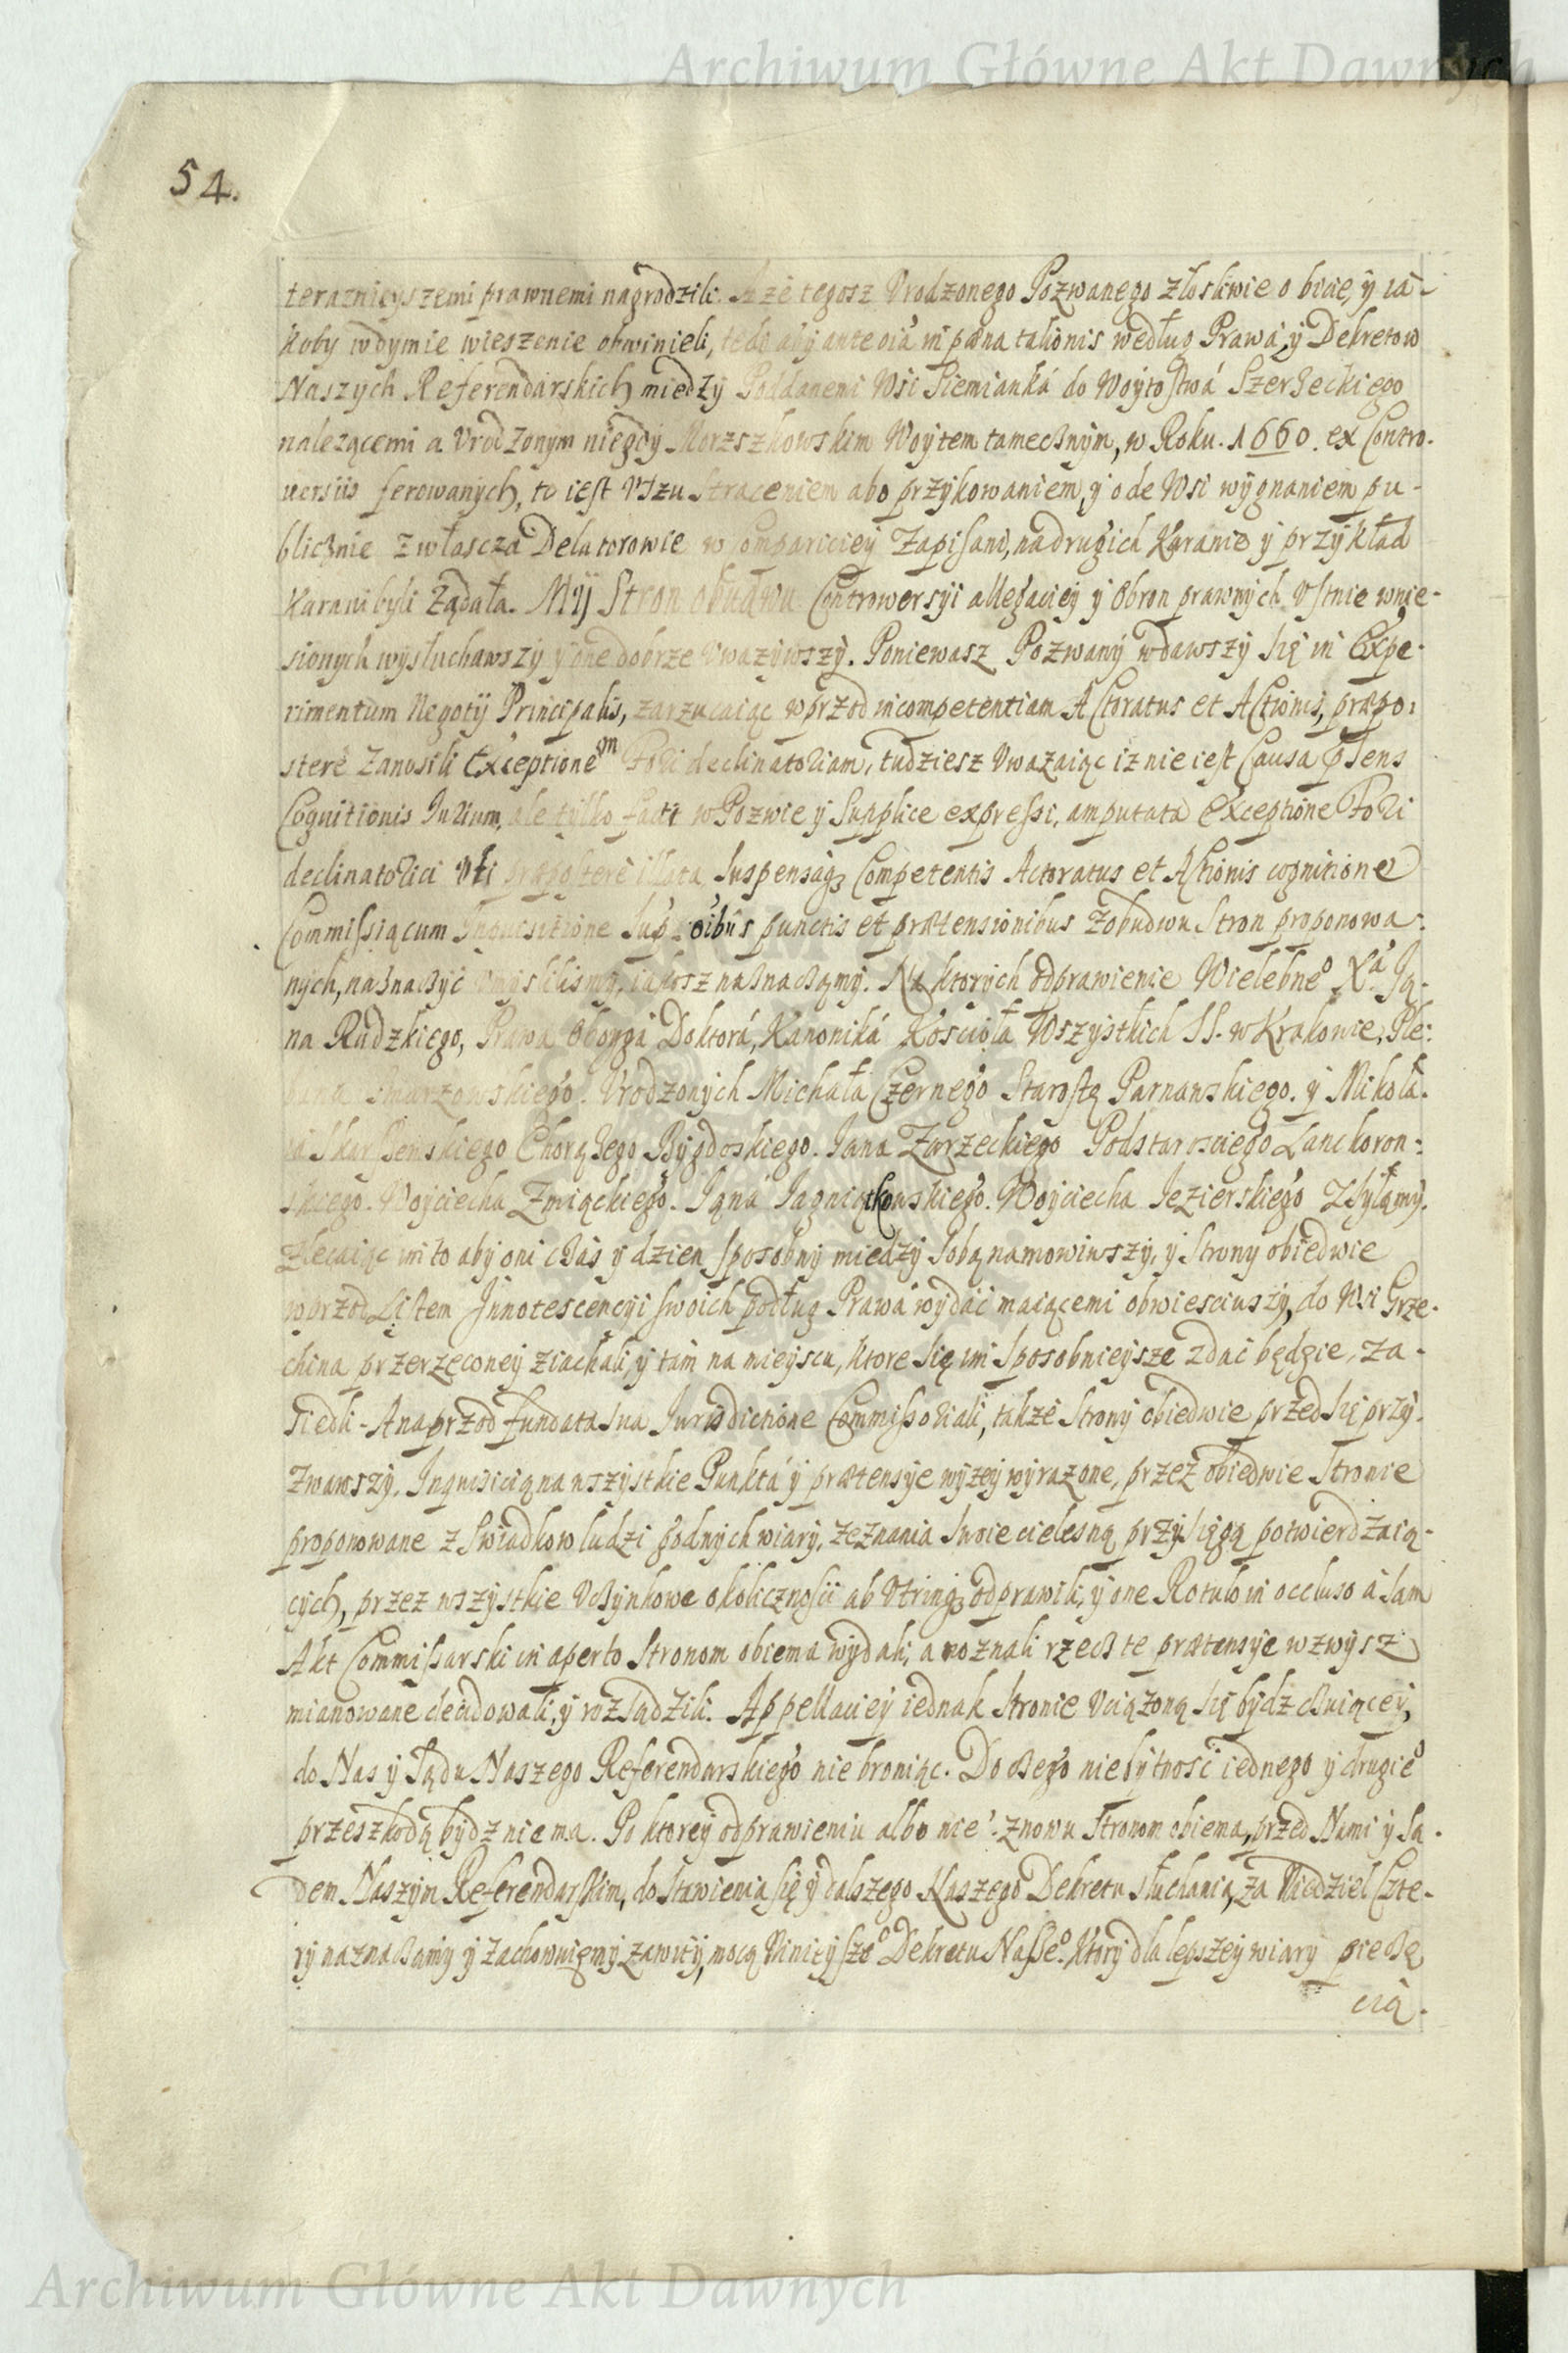 Archiwum Główne Akt Dawnych
54.
teraznieyszemi prawnemi nagrodzili. A że tegosz Vrodzonego Pozwanego złosliwie o bicie, y ia-
koby wdymie wieszenie obwinieli, tedy aby ante oia in pœna talionis według Prawa, y Dekretow
Naszych Referendarskich między Poddanemi Wsi Siemianká do Woytostwá Szerzeckiego
nalezącemi a Vrodzonym niegdy Morzszkowskim Woytem tamecznym, w Roku. 1660. ex Contro-
uersiis ferowanych, to iest Vszu Straceniem abo przykowaniem, y ode Wsi wygnaniem pu-
blicznie zwłascza Delatorowie w Compariciey Zapisani, na drugich Karanie y przykład
Karani byli Ządała. My Stron obudwu Controwersyi allegaciey y Obron prawnych Vstnie wnie-
sionych wysłuchawszy y one dobrze Vwazywszy. Poniewasz Pozwany wdawszy się in Expe-
rimentum Negotij Principalis, zarzucaiąc wprzod incompetentiam Actoratus et Actionis, præpo:
sterè Zanosili Exceptionem Fori declinatoriam, tudziesz Vwazaiąc iz nie iest Causa pñsens
Cognitionis Iurium, ale tylko facti w Pozwie y Supplice expressi, amputata Exceptione Fori
declinatorici Vti præposterè illata, Suspensaq; Competentis Actoratus et Actionis cognitione
Commissią cum Inquisitione Sup oibus punctis et prætensionibus Zobudwu Stron proponowa:
nych, naznaczyć Vmyslilismy, iakosz naznaczamy. Na ktorych odprawienie Wielebneo Xa Ja-
na Rudzkiego, Prawa Oboyga Doktorá, Kanoniká Kościoła Wszystkich SS. w Krakowie, Ple:
bana Smarzowskiego. Vrodzonych Michała Czernego Starostę Parnawskiego. y Mikoła-
ia Skarszewskiego Chorązego Bygdoskiego. Jana Zarzeckiego Podstarosciego Lanckoron:
skiego. Woyciecha Zmiąckiego. Jana Jagniątkowskiego. Woyciecha Jezierskiego Zsyłamy.
Zlecaiąc im to aby oni czás y dzien sposobny miedzy sobą namowiwszy, y Strony obiedwie
wprzod Listem Innotescencyi swoich podług Prawa wydać maiącemi obwiesciuszy, do Wsi Grze-
china przerzeconey ziachali, y tam na mieyscu, ktore się im sposobnieysze zdać będzie, za-
siedli. A naprzod fundata sua Jurisdictione Commissoriali, takze Strony obiedwie przed się przy-
zwawszy. Inquisicią na wszystkie Punktá y prætensye wyzey wyrazone, przez obiedwie Stronie
proponowane z Swiadkow ludzi godnych wiary, zeznania swoie cielesną przysięgą potwierdzaią-
cych, przez wszystkie Vczynkowe okoliczności ab Vtrinq; odprawili, y one Rotulo in occluso á sam
Akt Commissarski in aperto Stronom obiema wydali, a poznali rzecz te prætensye wzwysz
mianowane decidowali, y rozsądzili. Appellaciey iednak Stronie Vciązoną się bydz czuiącey,
do Nas y Sądu Naszego Referendarskiego nie broniąc. Do czego niebytność iednego y drugieo
przeszkodą bydz nie ma. Po ktorey odprawieniu albo nie: znowu Stronom obiema, przed Nami y Są-
dem Naszym Referendarskim, do Stawienia się y dalszego Naszego Dekretu słuchania, za Niedziel Czte-
ry naznaczamy y zachowuięmy zawity, mocą Ninieyszeo Dekretu Naszeo. Ktory dla lepszey wiary pieczę
cią.
Archiwum Główne Akt Dawnych